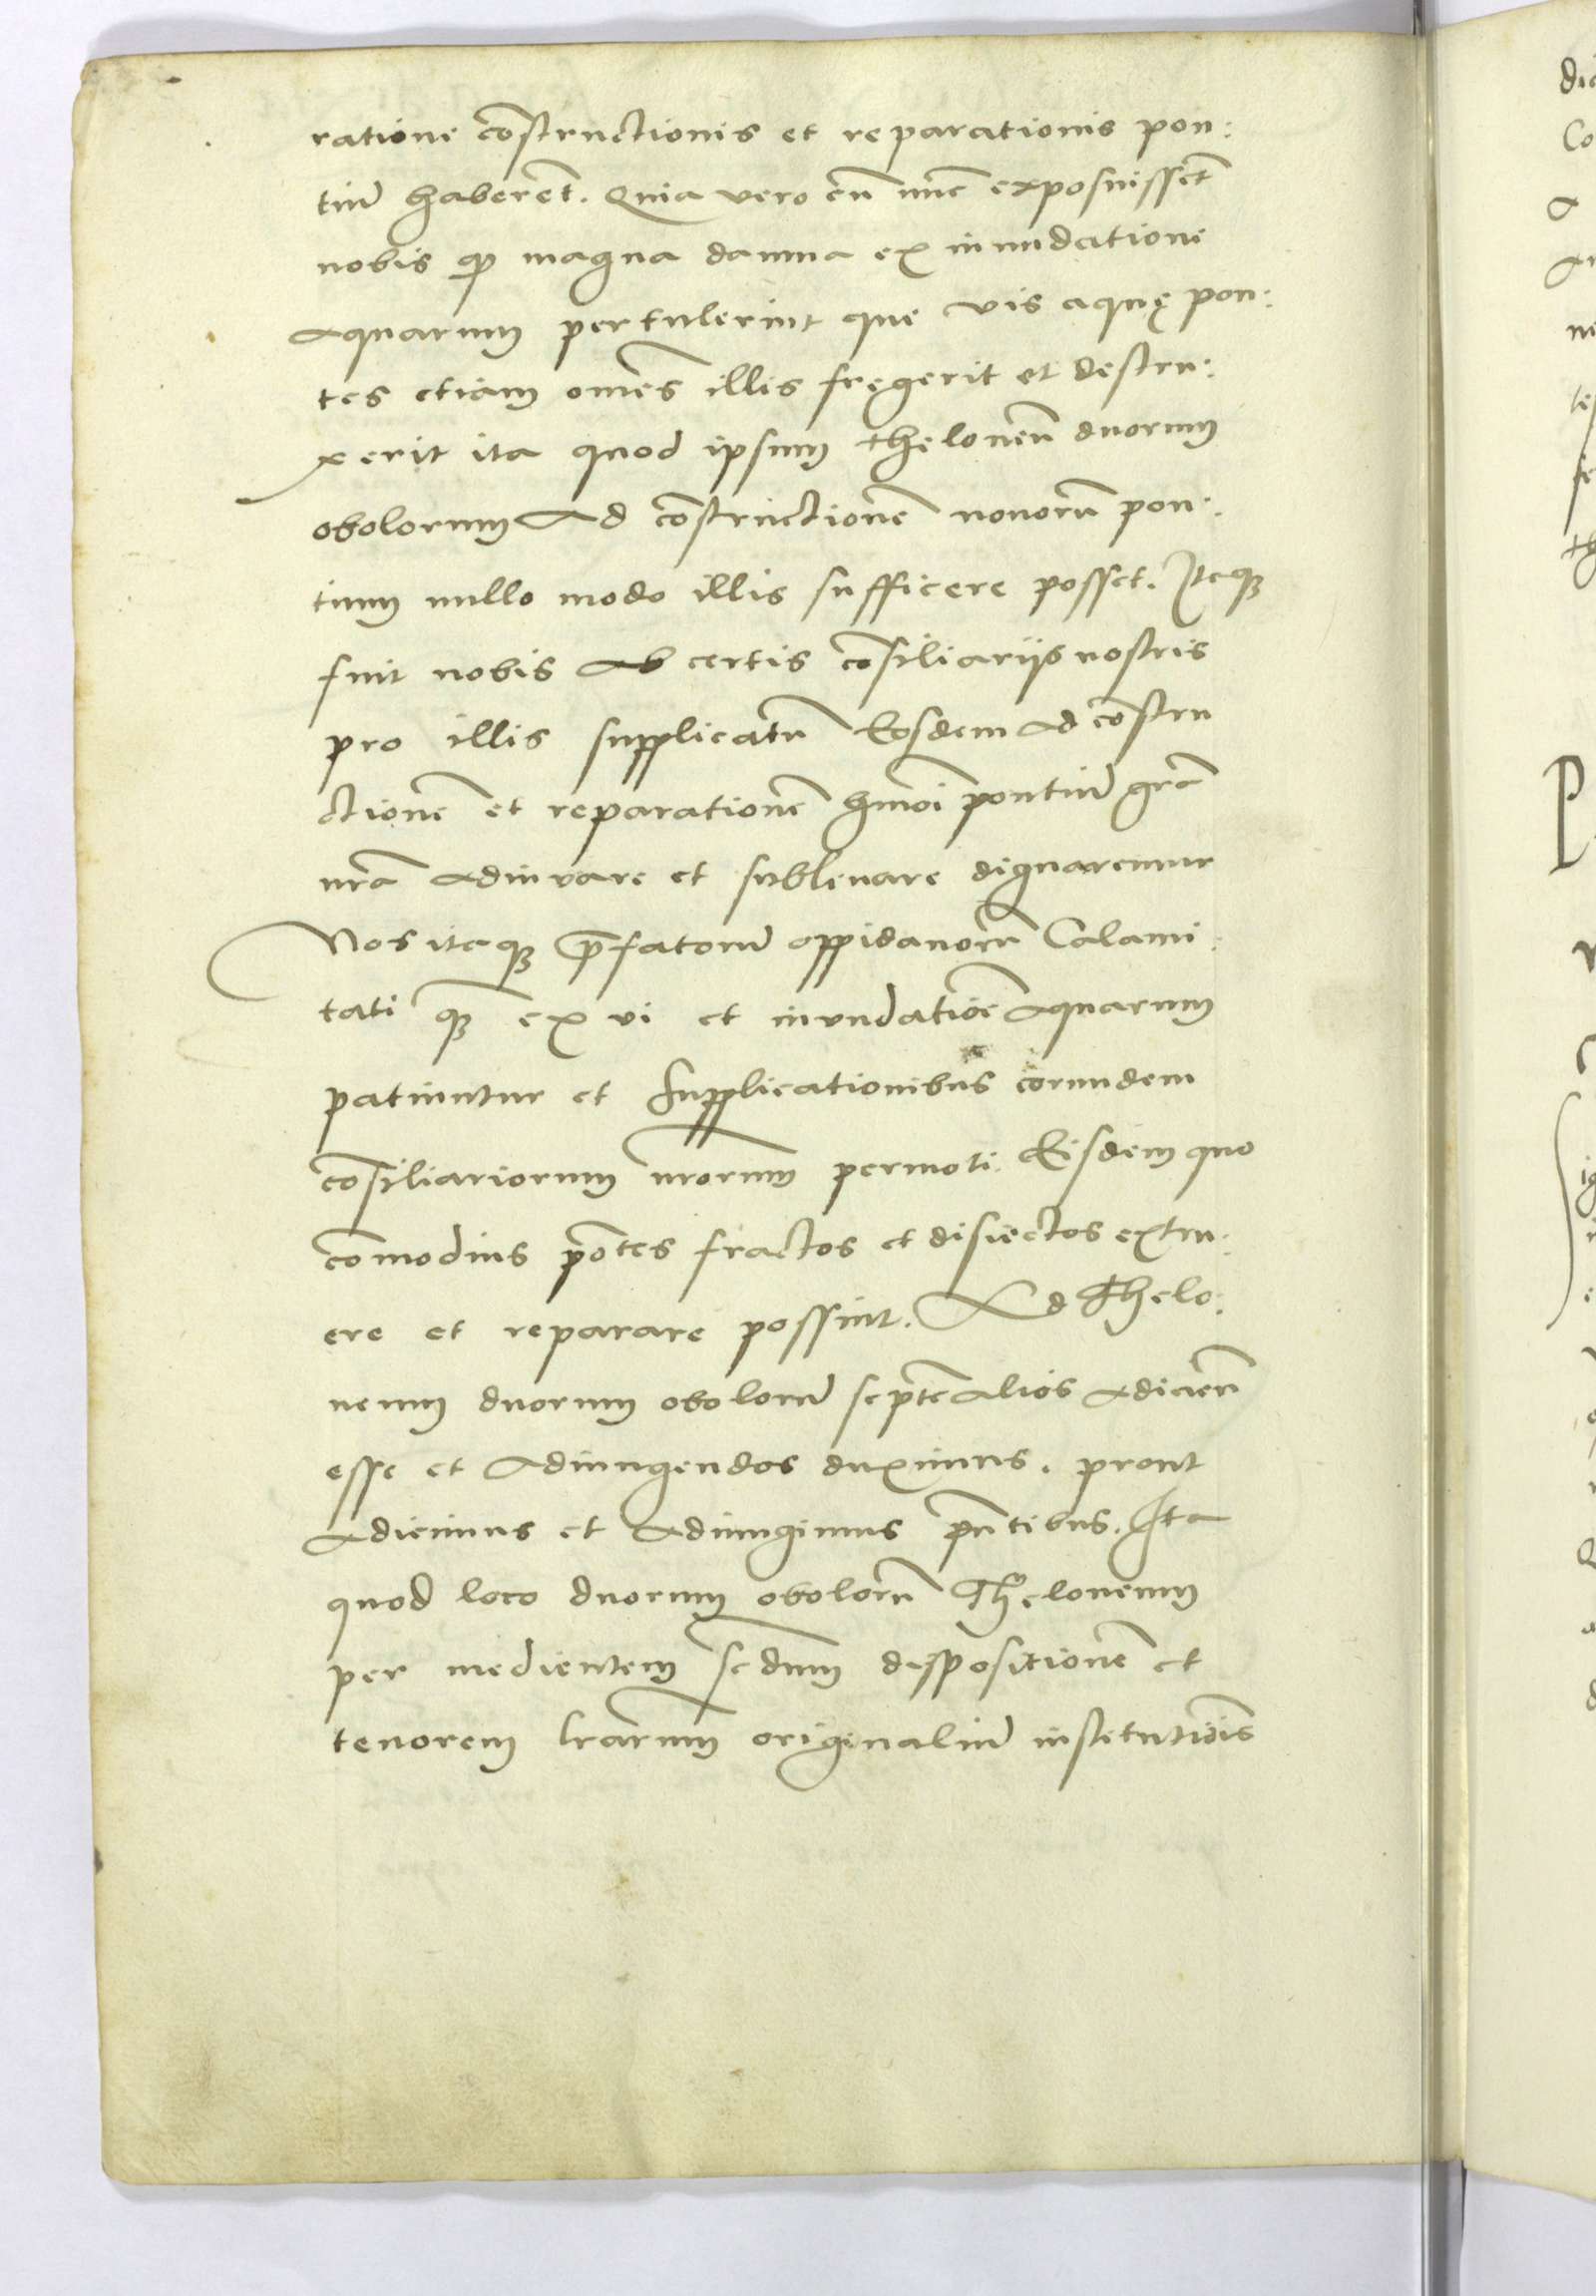 ratione cōstructionis et reparationis pon:
tiū haberēt. Quia vero cū nūc exposuissēt
nobis qꝫ magna damna ex inundatione
aquarum pertulerint que vis aquę pon:
tes etiam om̄es illis fręgerit et destru:
xerit ita quod ipsum theloneū duorum
obolorum ad cōstructionē nouorū pon:
tium nullo modo illis sufficere posset. Itaqꝫ
fuit nobis ab certis cōsiliarijs nostris
pro illis supplicatū Eosdem ad cōstru
ctionē et reparationē hmōi pontiū gr̄a
nr̄a adiuvare et subleuare dignaremur
Nos itaqꝫ p̄fatorū oppidanorū Calami:
tati qꝫ ex vi et invndatiōe aquarum
patiuntur et supplicationibus eorundem
cōsiliariorum nr̄orum permoti. Eisdem quo
cōmodius pōtes fractos et disiectos extru:
ere et reparare possint. Ad Thelo:
neum duorum obolorū septē alios adiciēn
esse et adiungendos duximus. prout
adicimus et adiungimus pn̄tibus. Ita
quod loco duorum obolorū Theloneum
per medientem sc̄dum dispositionē et
tenorem lr̄arum originaliū institutiōis